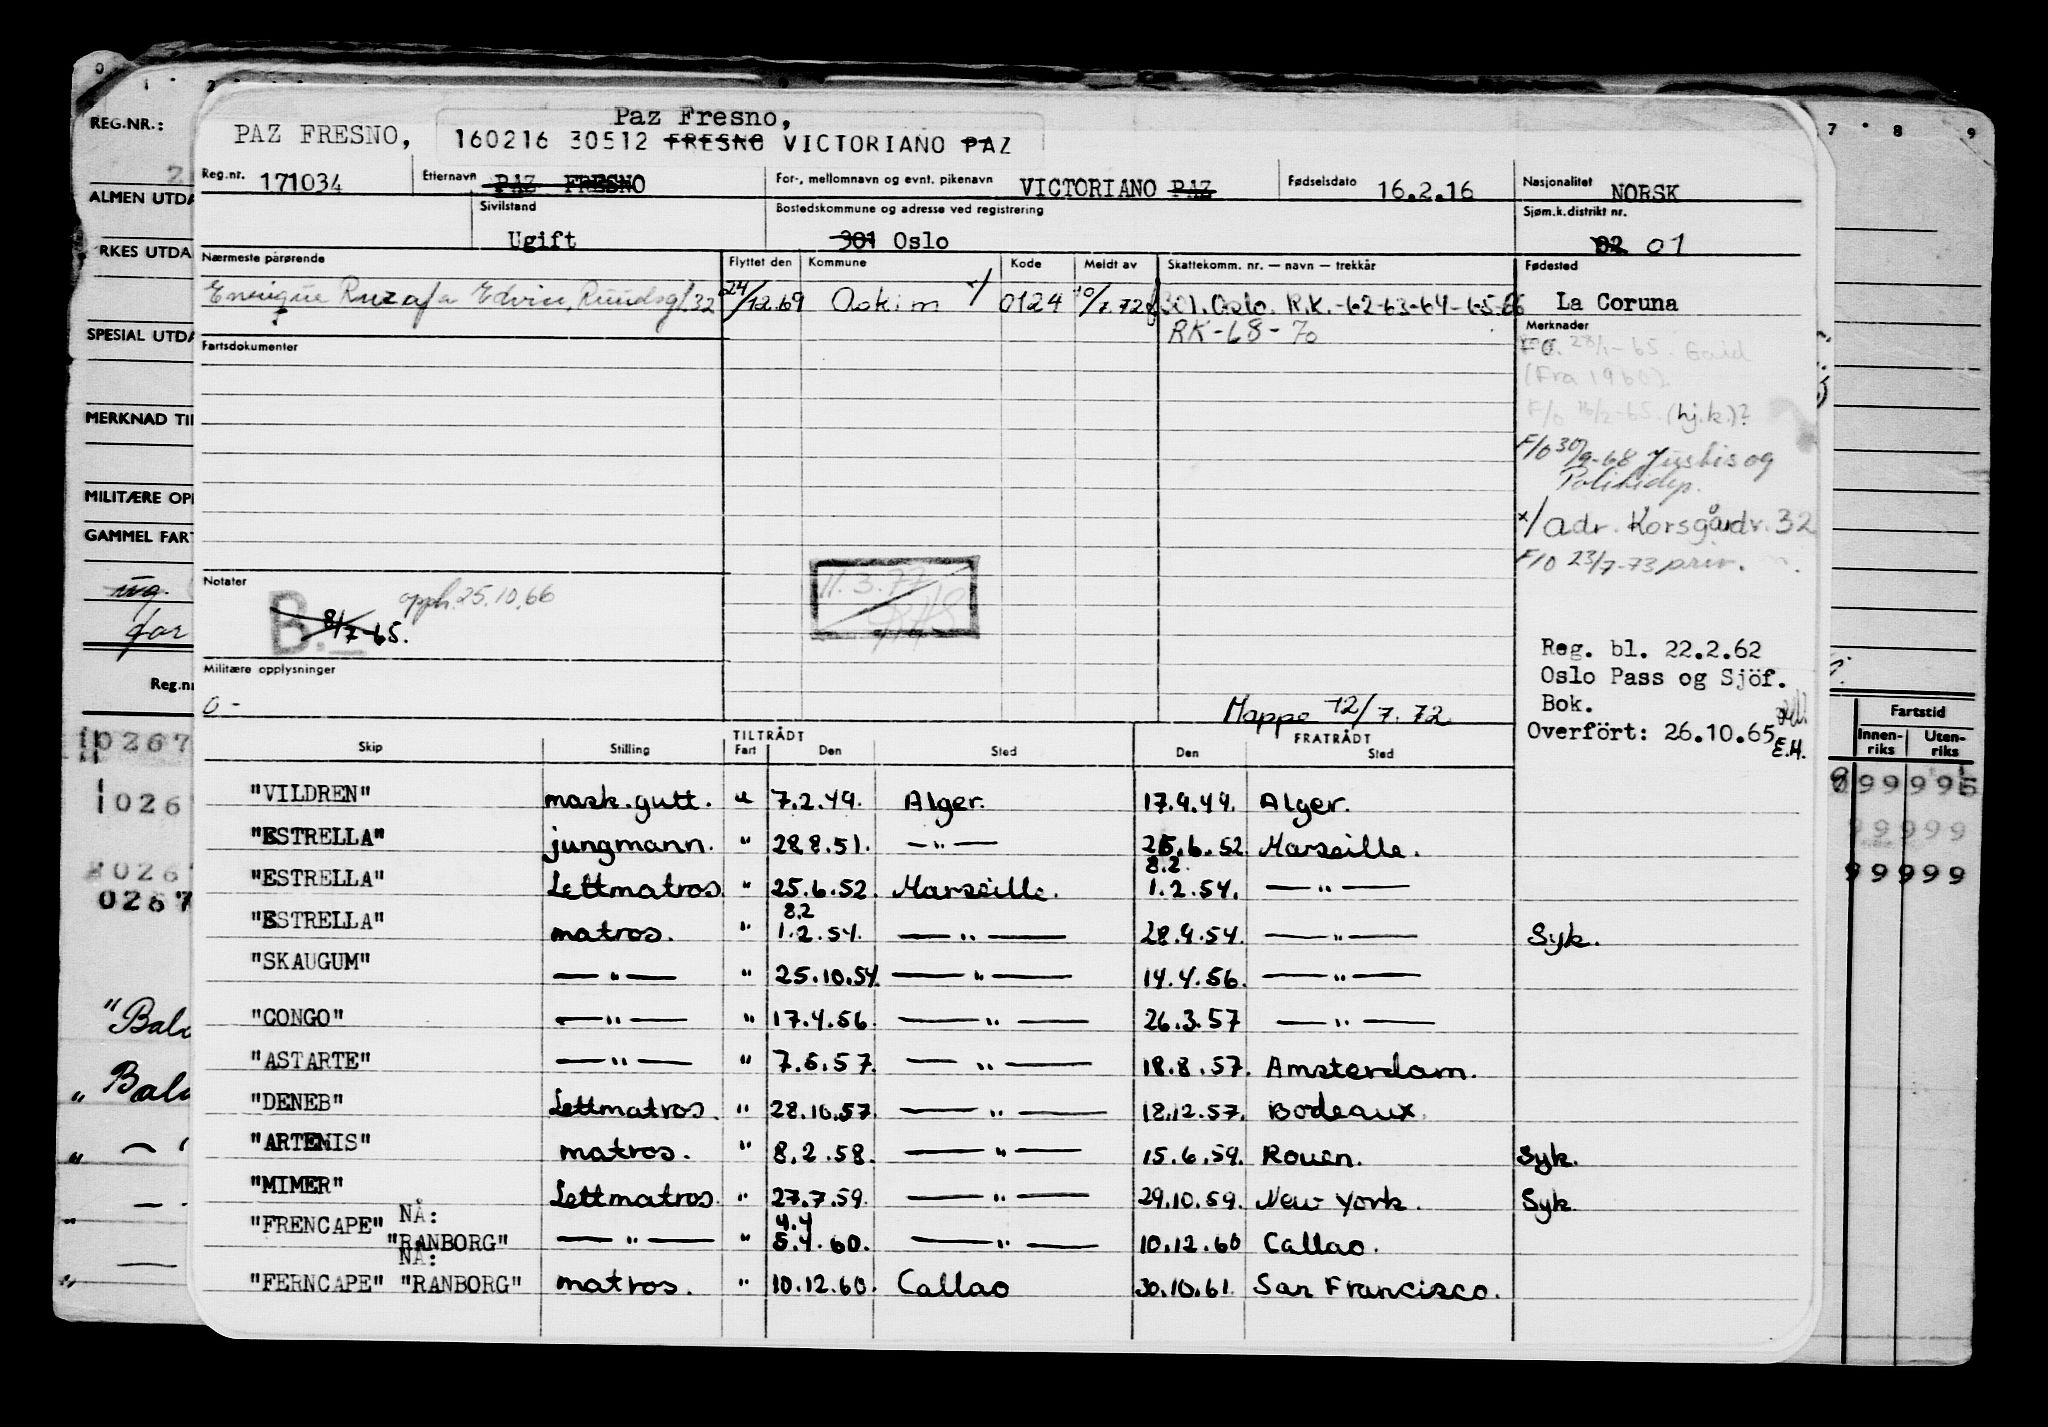 0 1 2 7 8 9
REG.NR.:
ALMEN UTDA
RKES UTDA
SPESIAL UTDA
MERKNAD TIL
MILITÆRE OPP
GAMMEL FART
ug.
for
Reg.nr
10267
10267
0267
0267
"Bal
„ Bal
Fartstid
Innen-riks Uten-riks
99999
99999
99999
Paz Fresno,
PAZ FRESNO, 160216 30512 FRESNO VICTORIANO PAZ
Reg.nr. 171034 Etternavn PAZ FRESNO For-, mellomnavn og evnt. pikenavn VICTORIANO PAZ Fødselsdato 16.2.16 Nasjonalitet NORSK
Sivilstand Ugift Bostedskommune og adresse ved registrering 301 Oslo Sjøm.k.distrikt nr. 02 01
Nærmeste pårørende Flyttet den Kommune Kode Meldt av Skattekomm. nr. — navn — trekkår Fødested
Enrique Ruzafa Edvin Ruudsgt. 32 24/12.69 Askim x/ 0124 10/7.72 301. Oslo. R.K.-62-63-64-65-66 La Coruna
RK-68-70
Merknader
28/1-65. Gaid
(Fra 1960)
F/o 16/2-65. (hj.k.)?
F/o 30/9-68 Justis og
Politidep.
x/ adr. Korsgårdv. 32
F/o 23/7-73 priv.
Fartsdokumenter
Notater
B. 8/7-65. opph. 25.10.66
11.3.77
Militære opplysninger
0 -
Mappe 12/7.72
Reg. bl. 22.2.62
Oslo Pass og Sjöf.
Bok.
Overfört: 26.10.65
E.H.
TILTRÅDT FRATRÅDT
Skip Stilling Fart Den Sted Den Sted
"VILDREN" mask.gutt. u 7.2.49. Alger. 17.9.49. Alger.
"ESTRELLA" jungmann. " 28.8.51. —"— 25.6.52. Marseille.
8.2.
"ESTRELLA" Lettmatros. " 25.6.52. Marseille. 1.2.54. —"—
8.2
"ESTRELLA" matros. " 1.2.54. —"— 28.9.54. —"— Syk.
"SKAUGUM" —"— " 25.10.54. —"— 14.4.56. —"—
"CONGO" —"— " 17.4.56. —"— 26.3.57 —"—
"ASTARTE" —"— " 7.5.57. —"— 18.8.57. Amsterdam.
"DENEB" Lettmatros. " 28.10.57. —"— 18.12.57. Bodeaux.
"ARTEMIS" matros. " 8.2.58. —"— 15.6.59. Rouen. Syk.
"MIMER" Lettmatros. " 27.7.59. —"— 29.10.59. New York. Syk.
NÅ: 4.4
"FRENCAPE" "RANBORG" —"— " 5.4.60. —"— 10.12.60 Callao.
NÅ:
"FERNCAPE" "RANBORG" matros. " 10.12.60. Callao 30.10.61. San Francisco.